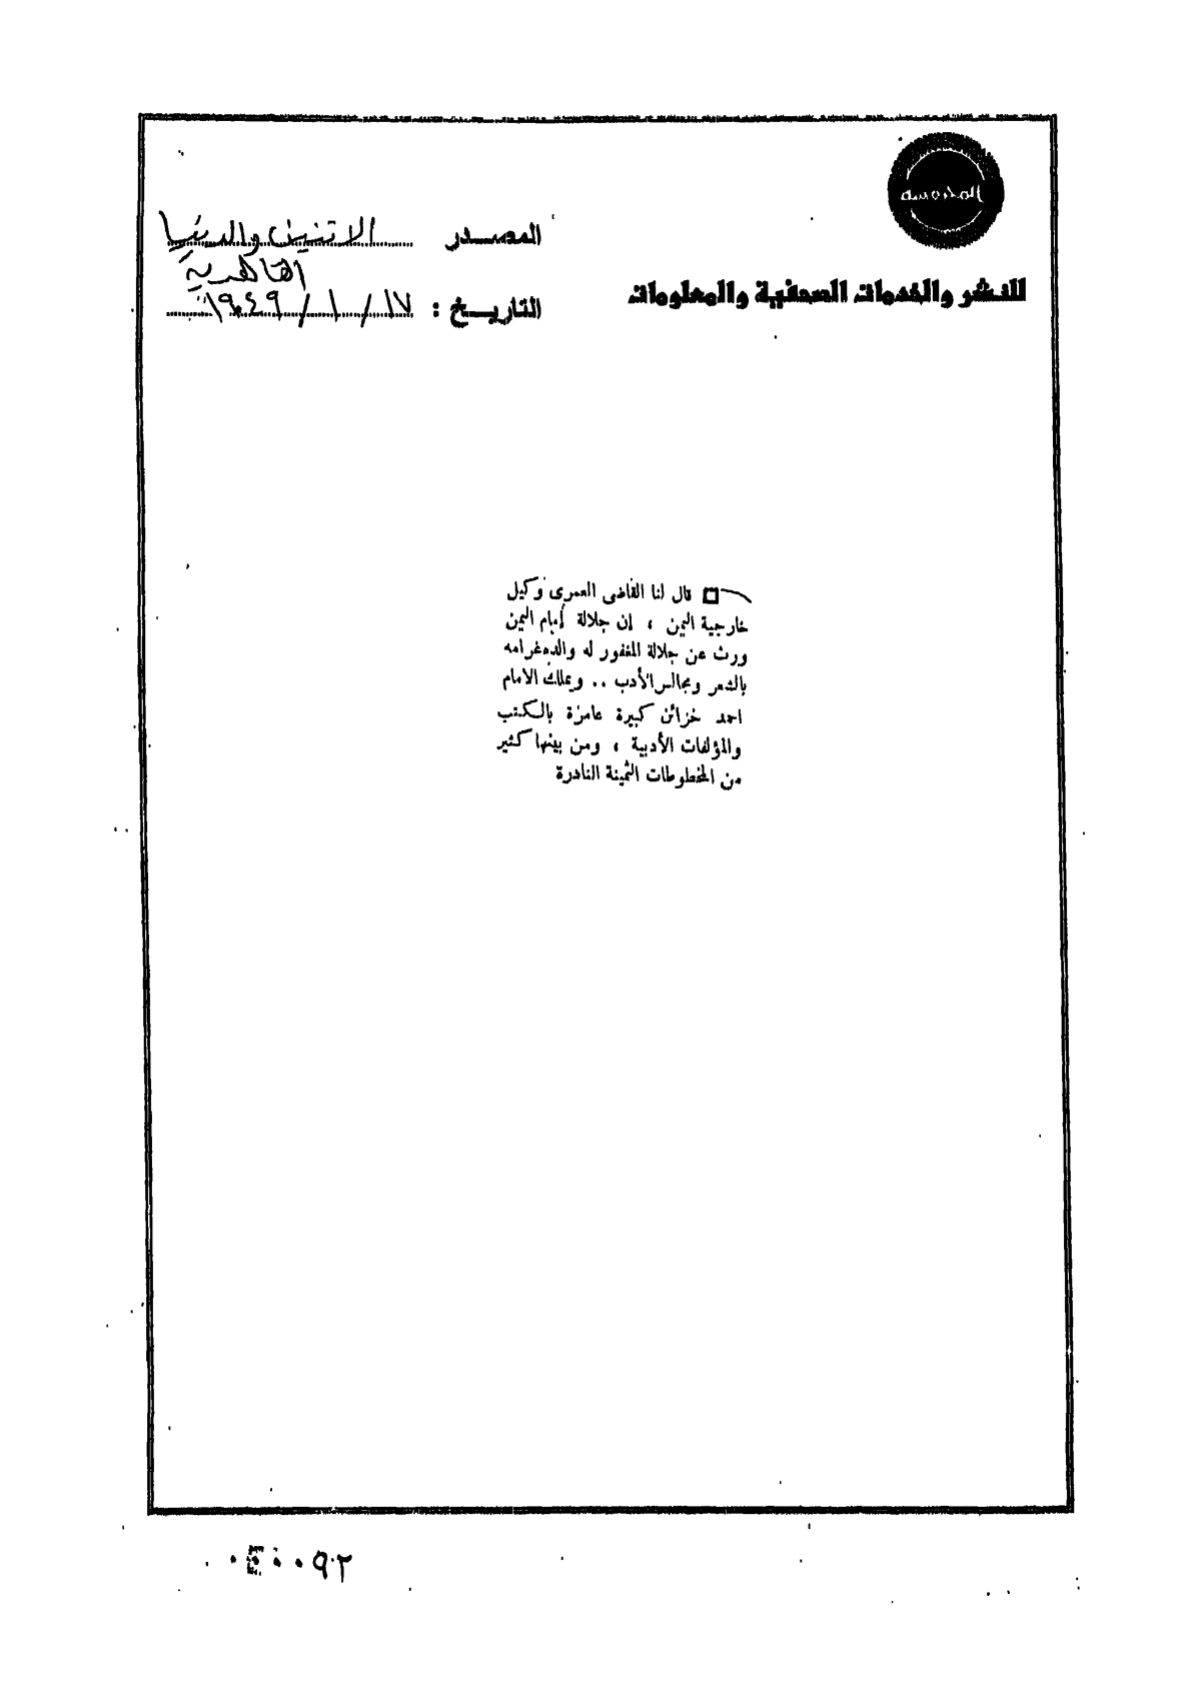 المحروسة
للنشر والخدمات الصحفية والمعلومات
المصدر الاتنين والدنيا
القاهرية
التاريخ : ١٧/ ١/ ١٩٤٩
قال لنا القاضى العمرى وكيل
خارجية اليمن ، إن جلالة إمام اليمن
ورث عن جلالة المغفور له والده غرامه
بالشعر ومجالس الأدب .. ويملك الامام
احمد خزائن كبيرة عامرة بالكتب
والمؤلفات الأدبية ، ومن بينها كثير
من المخطوطات الثمينة النادرة